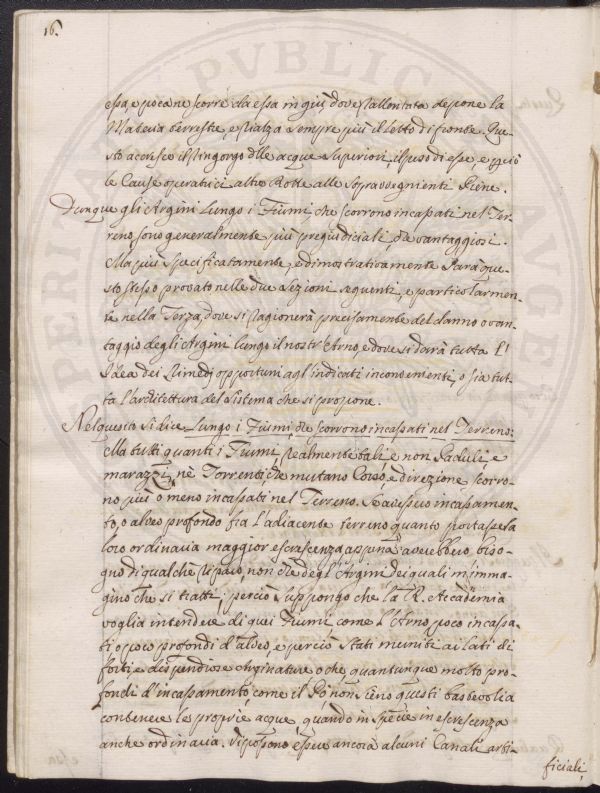 16.
essa, e poca ne scorre da essa in giù, dove rallentata depone la
Materia terrestre, e rialza sempre più il letto di fronte. Que-
sto accresce il ringorgo delle acque superiori, il peso di esse, e perciò
le Cause operatrici altre Rotte alle sopravvegnienti Piene.
Dunque gli Argini lungo i Fiumi, che scorrono incassati nel Ter-
reno sono generalmente più pregiudiciali, che vantaggiosi.
Ma più specificatamente, e dimostrativamente sarà que-
sto stesso provato nelle due Sezioni seguenti, e particolarmen-
te nella Terza, dove si ragionerà precisamente del danno o van-
taggio degli Argini lungo il nostr'Arno, e dove si darà tutta l'
Idea dei Rimedj opportuni agl'indicati inconvenienti, o sia tut-
ta l'architettura del Sistema che si propone.
Nel quesito si dice Lungo i Fiumi, che scorrono incassati nel Terreno:
Ma tutti quanti i Fiumi, realmente tali, e non Paduli, e
marazzi, nè Torrenti, che mutano Corso, e direzione scorro-
no più o meno incassati nel Terreno. Se avessero incassamen-
to, o alveo profondo fra l'adiacente terreno quanto portasse la
loro ordinaria maggior escrescenza, appena avrebbero biso-
gno di qualche riparo, non che degl'Argini dei quali m'imma-
gino che si tratti; perciò suppongo che la R. Accademia
voglia intendere di quei Fiumi come l'Arno poco incassa-
ti o poco profondi d'alveo, e perciò stati muniti ai lati di
forti, e dispendiose arginature o che quantunque molto pro-
fondi d'incassamento come il Po non sieno questi bastevoli a
contenere le proprie acque quando in specie in escrescenza
anche ordinaria. Vi possono essere ancora alcuni Canali arti-
ficiali,